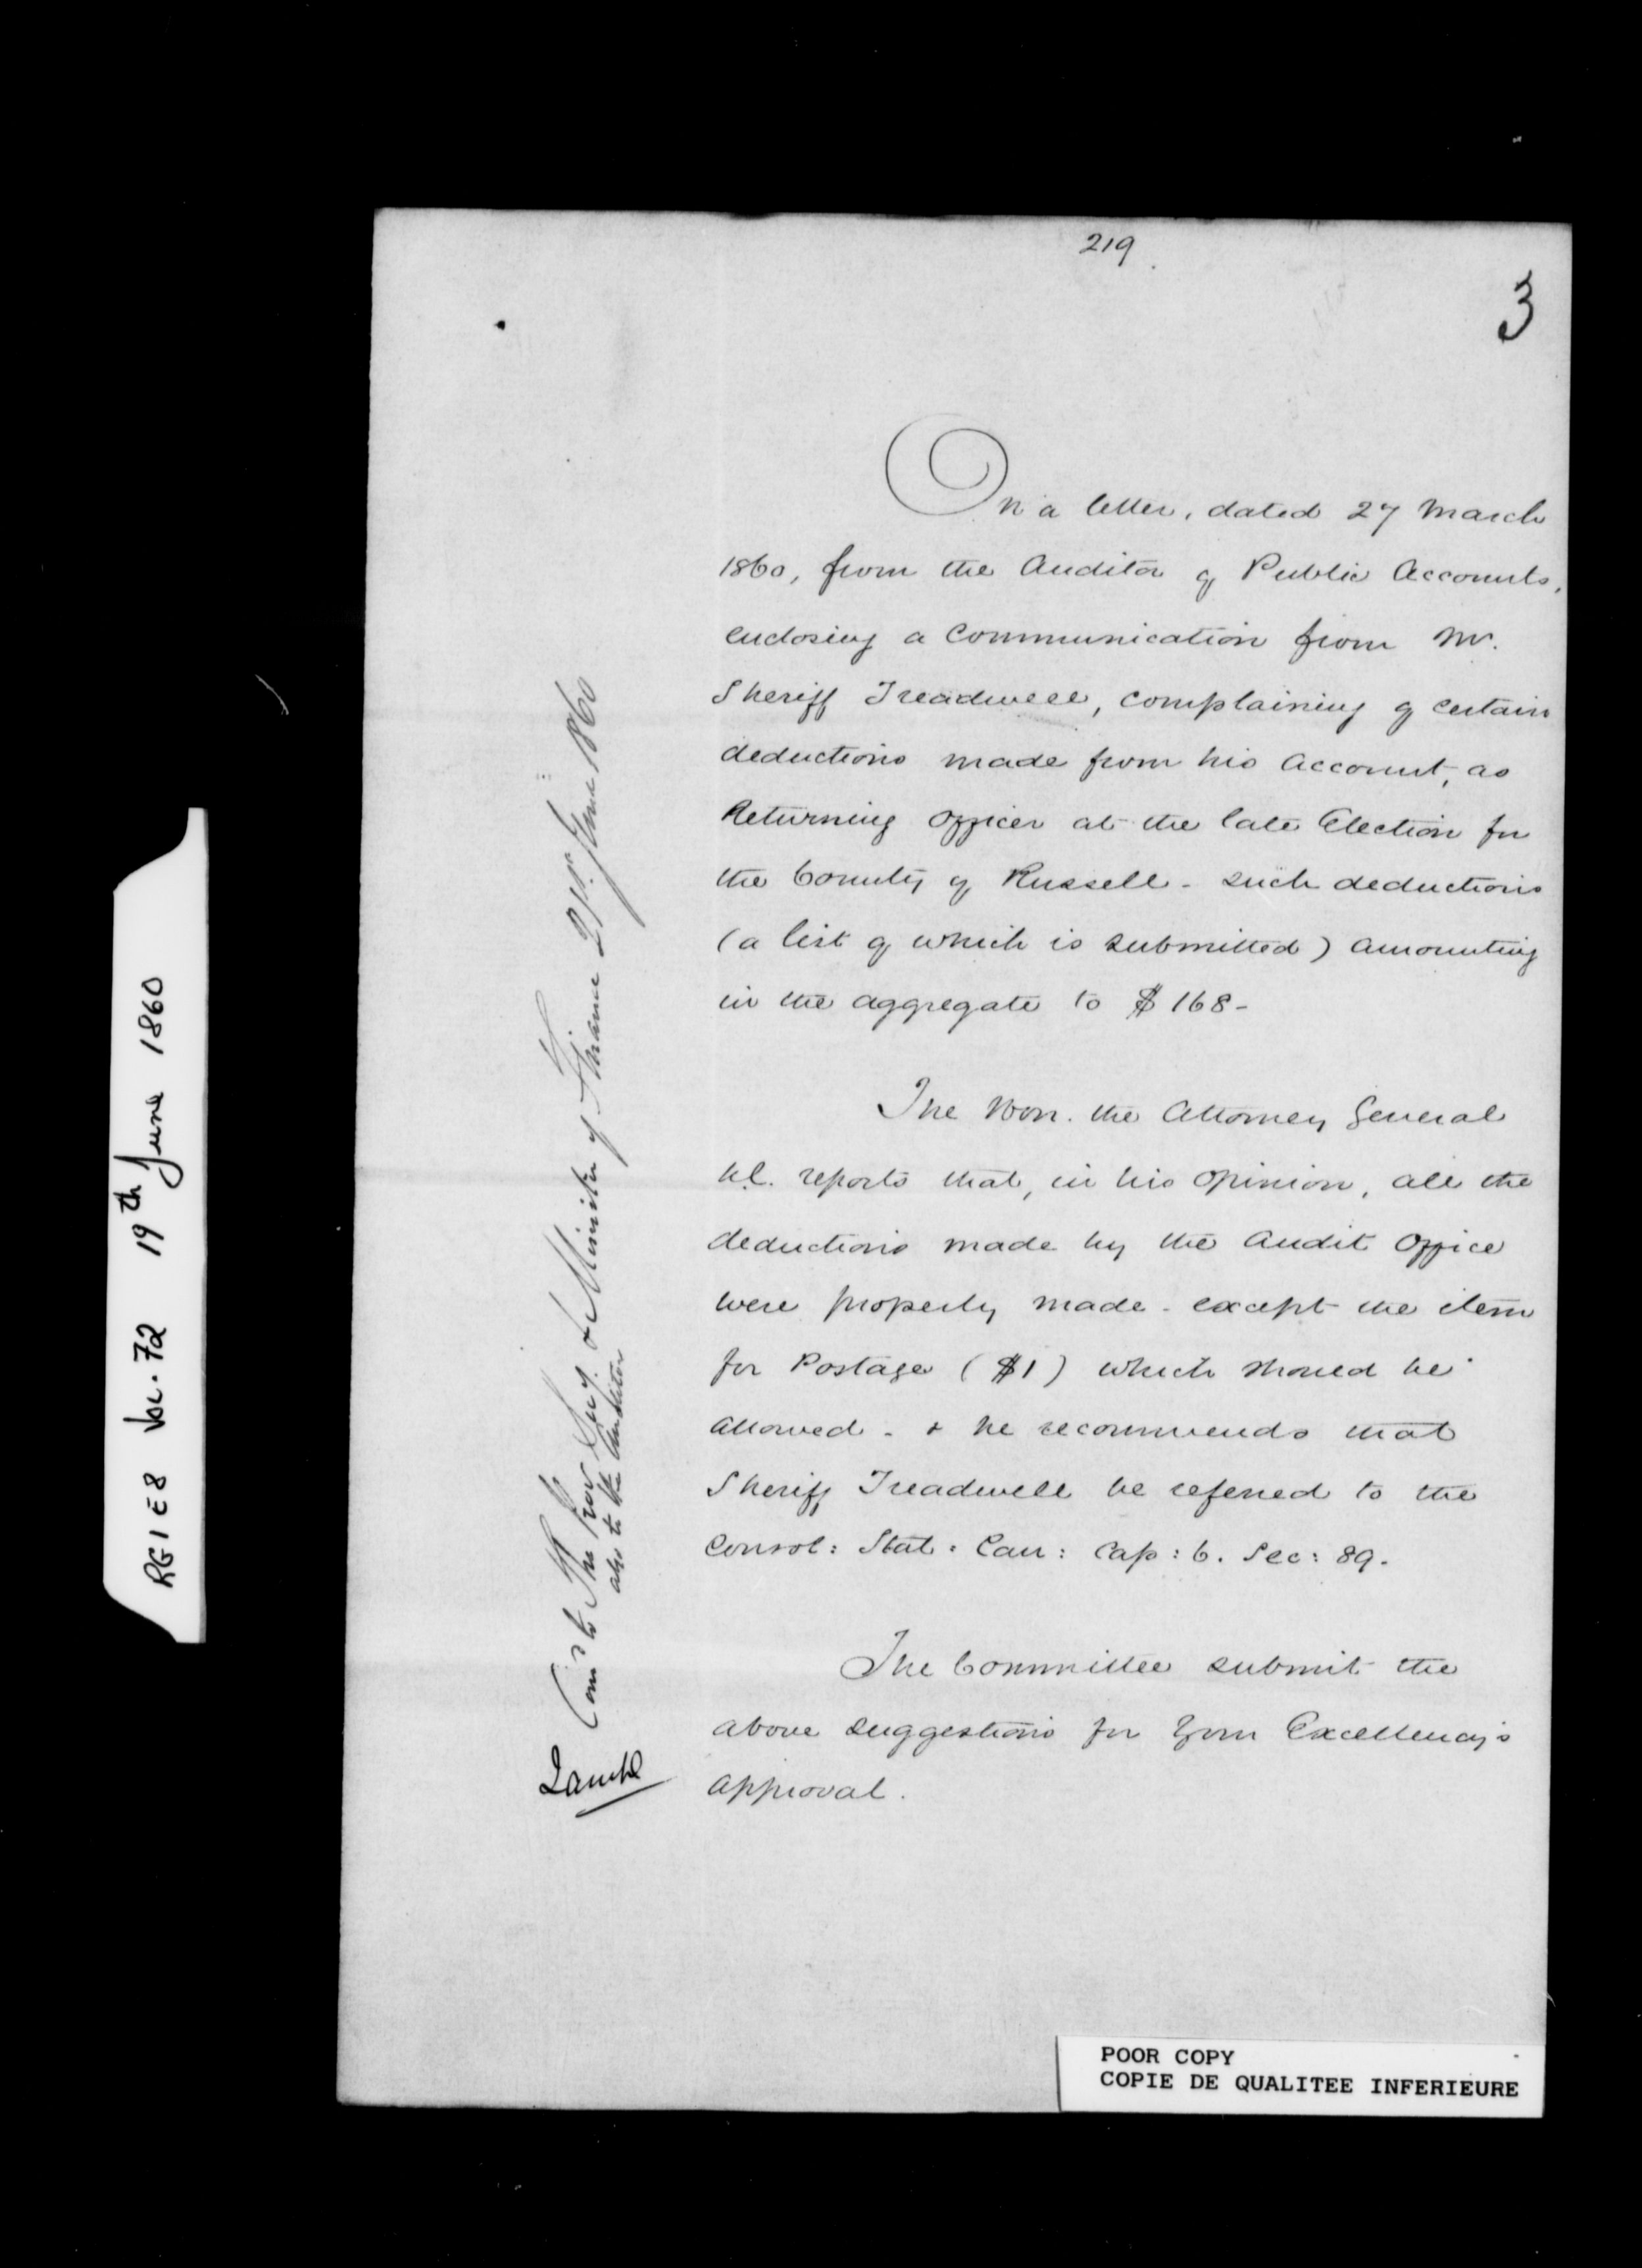 219
3
On a letter, dated 27 March
1860, from the Auditor of Public Accounts,
enclosing a Communication from Mr.
Sheriff Treadwell, complaining of certain
deductions made from his Account, as
Returning Officer at the late Election for
the County of Russell - such deductions
(a list of which is submitted) amounting
in the aggregate to $168-
The Hon. the Attorney General
U.C. reports that, in his opinion, all the
deductions made by the Audit Office
were properly made - except the item
for Postage ($1) which should be
allowed - & he recommends that
Sheriff Treadwell be referred to the
Consol: Stat: Can: Cap: 6. Sec: 89.
The Committee submit the
above suggestions for Your Excellency's
approval.
to The Prov Secy. & Minister of Finance 21st. June 1860
also to the Auditor
RG1E8 Vol. 72 19th June 1860
POOR COPY
COPIE DE QUALITEE INFERIEURE